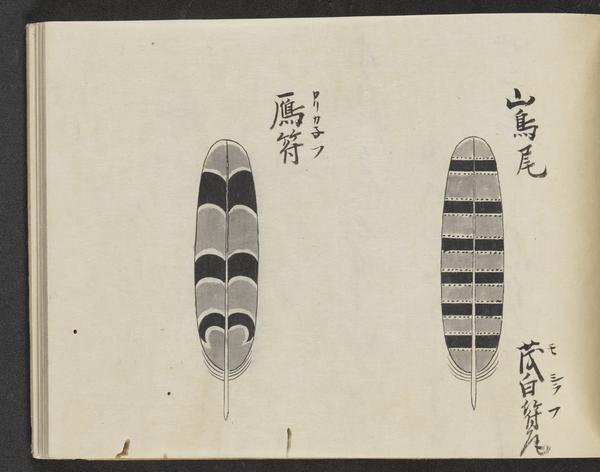 山鳥尾
茂白符尾
モシラフ
鴈符
カリカ子フ